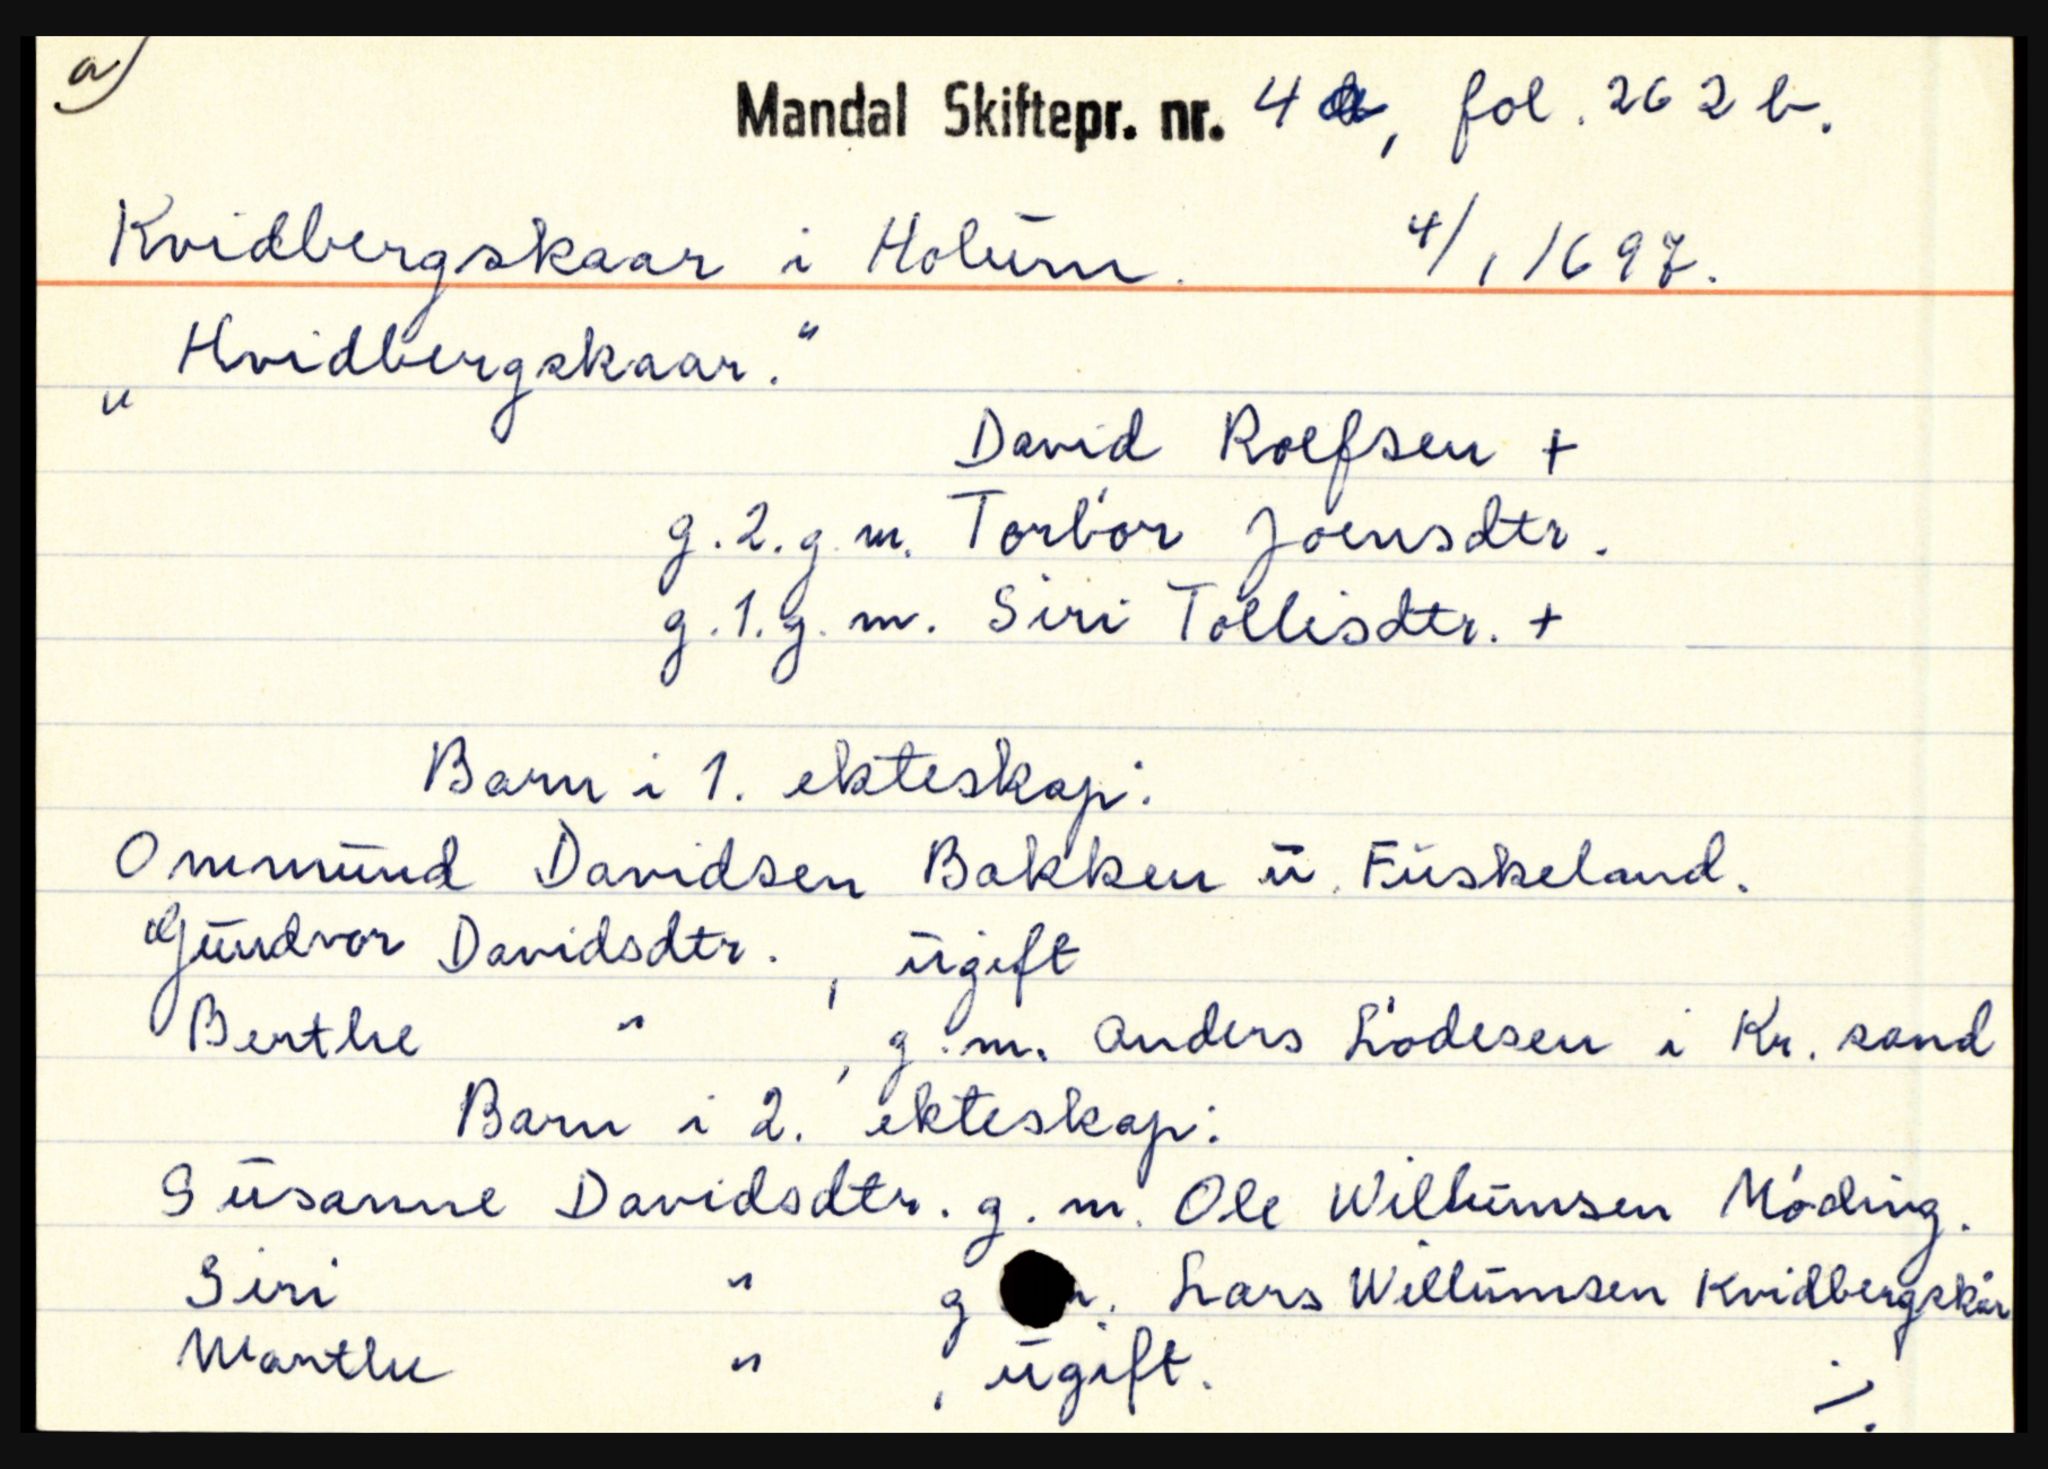 a)
Mandal Skiftepr. nr. 4a, fol. 262 b.
Kvidbergskaar i Holum. 4/1 1697.
„Hvidbergskaar."
David Roefsen +
g. 2. g. m. Torbór Joensdtr.
g. 1. g. m. Siri Tollisdtr. +
Barn i 1. ekteskap:
Ommund Davidsen Bakken u. Fuskeland.
Gundvor Davidsdtr. , ugift
Berthe " , g. m. Anders Lódesen i Kr. sand
Barn i 2. ekteskap:
Susanne Davidsdtr. g. m. Ole Willumsen Móding.
Siri " g m. Lars Willumsen Kvidbergskår
Marthe " , ugift.